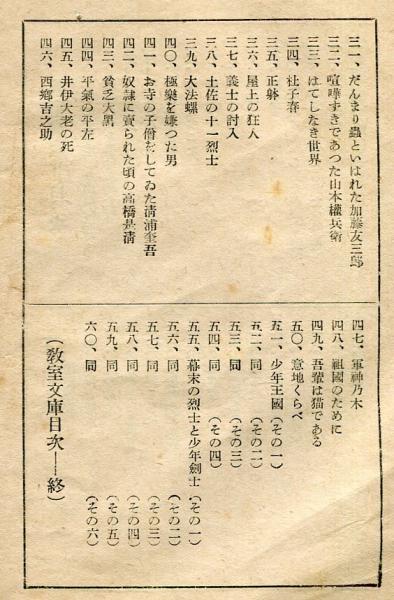 三一、だんまり蟲といはれた加藤友三郎
三二、喧嘩ずきであつた山本權兵衞
三三、はてしなき世界
三四、杜子春
三五、正躰
三六、屋上の狂人
三七、義士の討入
三八、土佐の十一烈士
三九、大法螺
四〇、極樂を嫌つた男
四一、お寺の子僧をしてゐた淸浦奎吾
四二、奴隷に賣られた頃の高橋是淸
四三、貧乏大黑
四四、平氣の平左
四五、井伊大老の死
四六、西鄕吉之助
四七、軍神乃木
四八、祖國のために
四九、吾輩は猫である
五〇、意地くらべ
五一、少年王國(その一)
五二、同(その二)
五三、同(その三)
五四、同(その四)
五五、幕末の烈士と少年劍士(その一)
五六、同(その二)
五七、同(その三)
五八、同(その四)
五九、同(その五)
六〇、同(その六)
(敎室文庫目次―終)